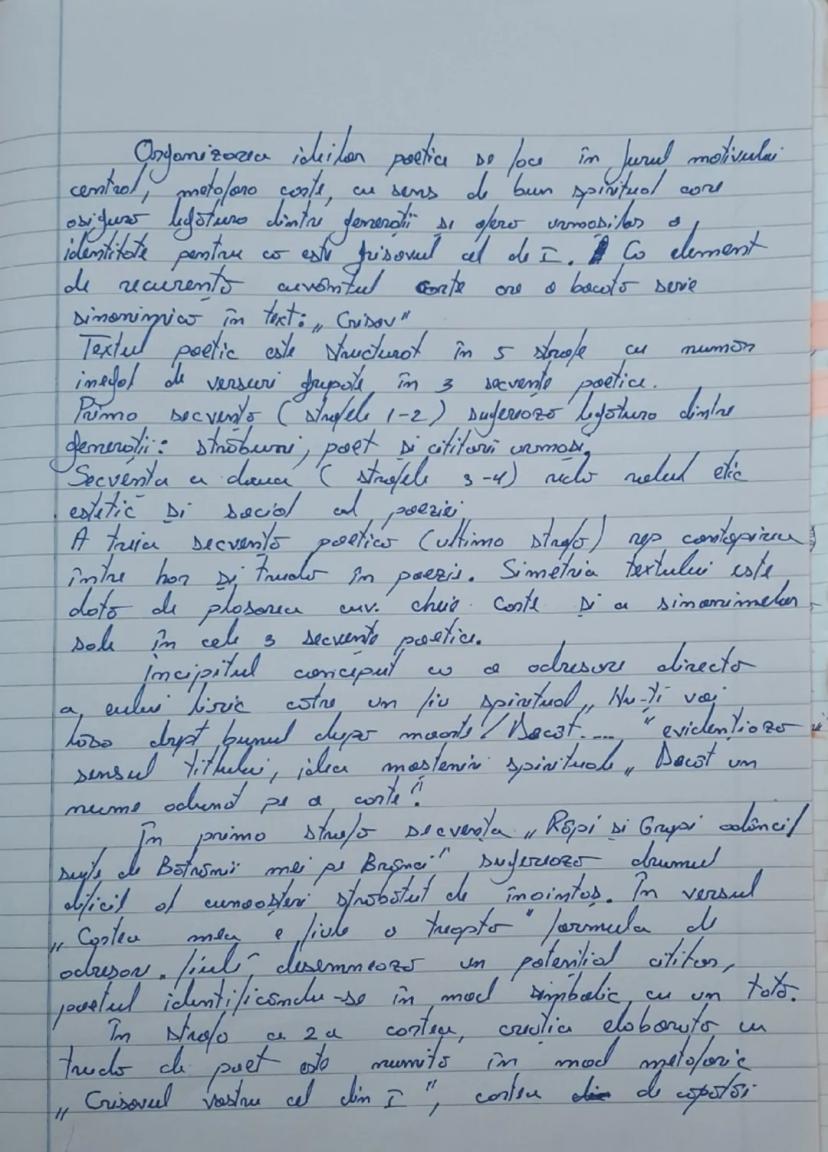 Organizarea ideilor poetice se face în jurul motivului
central, metafora carte, cu sens de bun spiritual care
asigură legătura dintre generații și oferă urmașilor o
identitate pentru că este hrisovul cel de I. Ca element
de recurență cuvântul carte are o bogată serie
sinonimică în text: „Crisov"
Textul poetic este structurat în 5 strofe cu număr
inegal de versuri grupate în 3 secvențe poetice.
Prima secvență (strofele 1-2) sugerează legătura dintre
generații: străbuni, poet și cititori urmași.
Secvența a doua (strofele 3-4) redă rolul etic
estetic și social al poeziei
A treia secvență poetică (ultima strofă) rep contopirea
între har și trudă în poezie. Simetria textului este
dată de plasarea cuv. cheie carte și a sinonimelor
sale în cele 3 secvențe poetice.
Incipitul conceput ca o adresare directă
a eului liric către un fiu spiritual „Nu-ți voi
lăsa drept bunuri după moarte/Decât .... " evidențiază
sensul titlului, ideea moștenirii spirituale „Decât un
nume adunat pe o carte".
În prima strofă secvența „Râpi și Gropi adânci/
suite de Bătrânii mei pe Brânci" sugerează drumul
dificil al cunoașterii străbătut de înaintași. În versul
„Cartea mea e fiule o treaptă" formula de
adresare „fiule" desemnează un potențial cititor,
poetul identificându-se în mod simbolic cu un tată.
În strofa a 2 a cartea, creația elaborată cu
trudă de poet este numită în mod metaforic
„Crisovul vostru cel din I", cartea de căpătâi